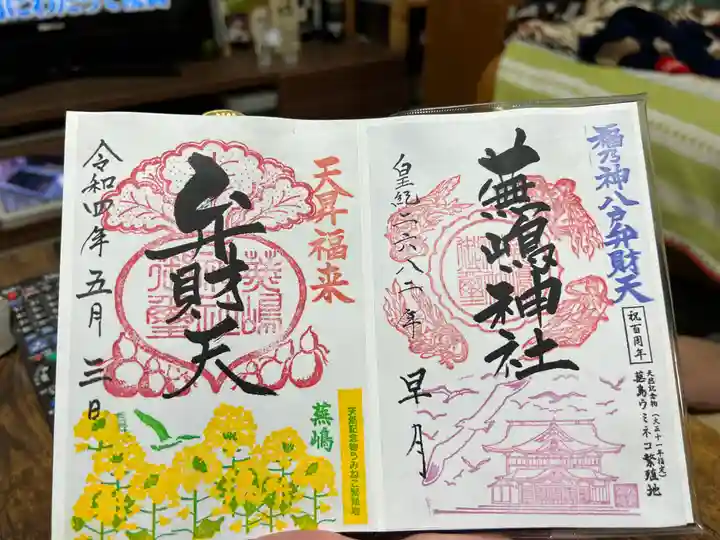 福乃神八戸弁財天
祝百周年
天然記念物(大正十一年指定)
蕪島ウミネコ繁殖地
蕪嶋神社
皇紀二六八二年
早月
天昇福来
弁財天
令和四年五月三日
蕪嶋
天然記念物うみねこ繁殖地